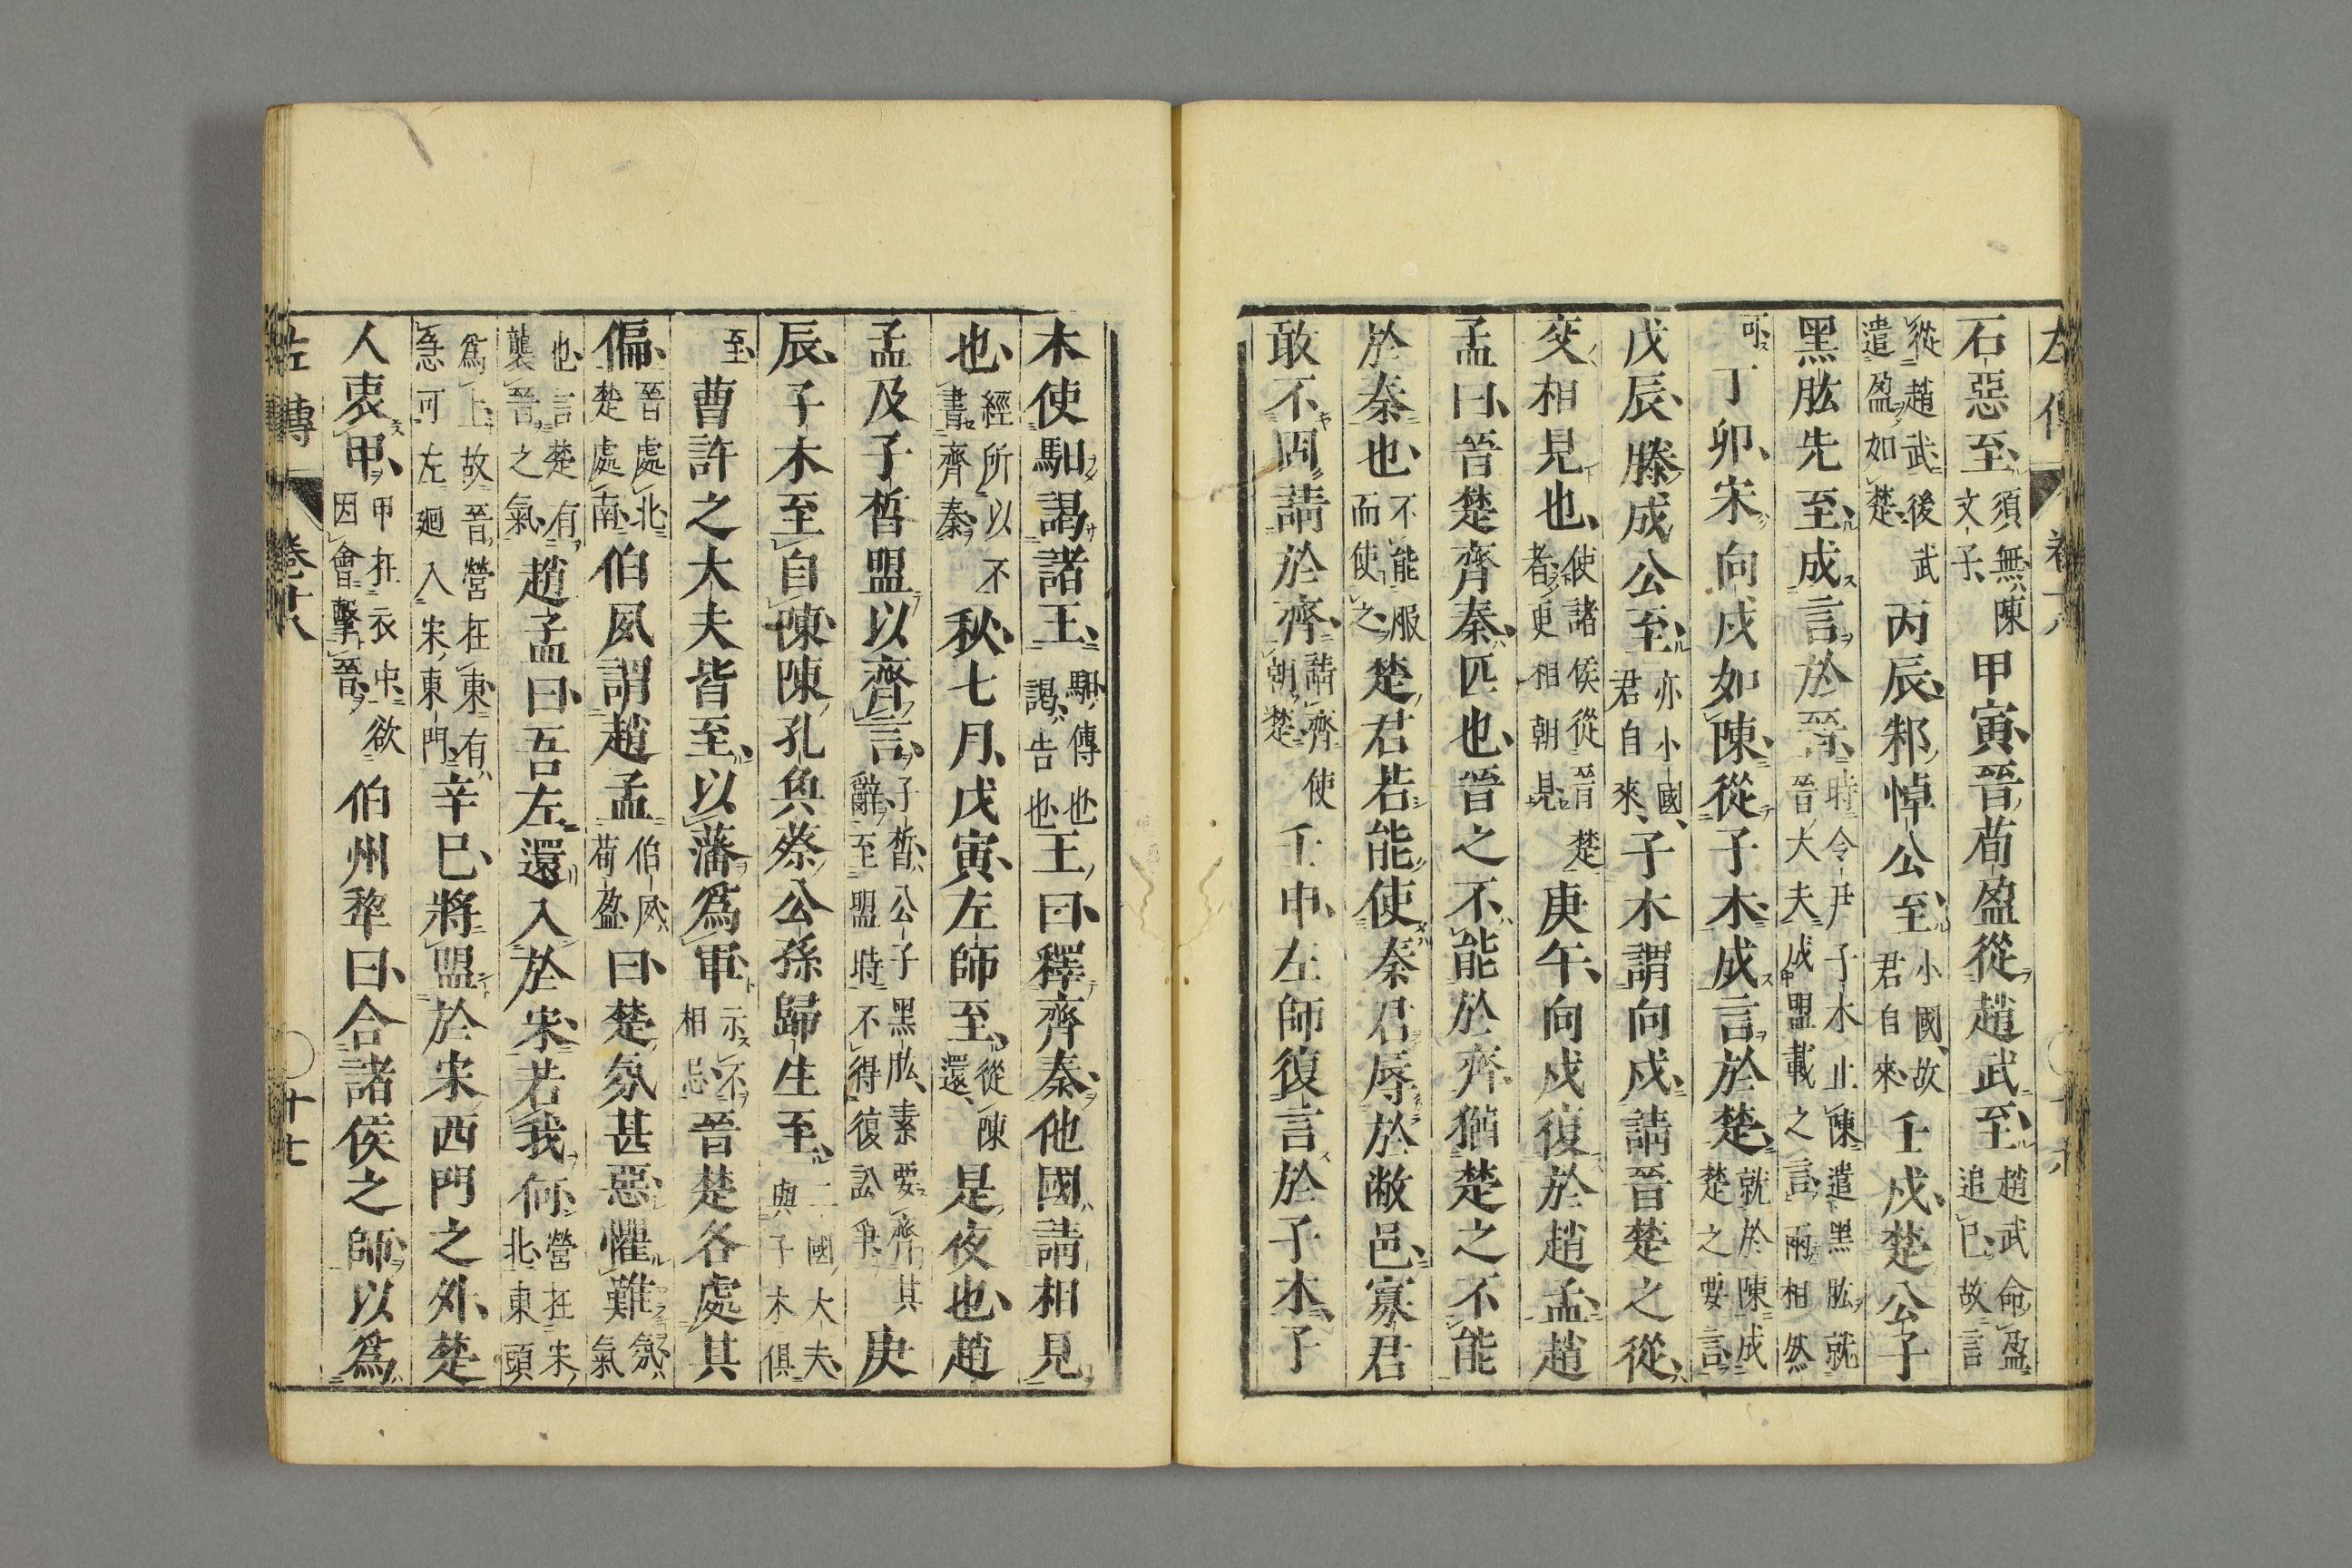 左傳 卷十八 十六
石惡至須無陳文子甲寅晉荀盈從趙武至趙武命盈追己故言
從趙武後武遣盈如楚丙辰邾悼公至小國故君自來壬戌楚公子
黑肱先至成言於晉時令尹子木止陳遣黑肱就晉大夫成盟載之言兩相然
可丁卯宋向戌如陳從子木成言於楚就於陳成楚之要言
戊辰滕成公至亦小國君自來子木謂向戌請晉楚之從
交相見也使諸侯從晉楚者更相朝見庚午向戌復於趙孟趙
孟曰晉楚齊秦匹也晉之不能於齊猶楚之不能
於秦也不能服而使之楚君若能使秦君辱於敝邑寡君
敢不固請於齊請齊使朝楚壬申左師復言於子木子
木使馹謁諸王馹傳也謁告也王曰釋齊秦他國請相見
也經所以不書齊秦秋七月戊寅左師至從陳還是夜也趙
孟及子皙盟以齊言子皙公子黑肱素要齊其辭至盟時不得復訟爭庚
辰子木至自陳陳孔奐蔡公孫歸生至二國大夫與子木俱
至曹許之大夫皆至以藩爲軍示不相忌晉楚各處其
偏晉處北楚處南伯夙謂趙孟伯夙荀盈曰楚氛甚惡懼難氛氣
也言楚有襲晉之氣趙孟曰吾左還入於宋若我何營在宋北東頭
爲上故晉營在東有急可左廻入宋東門辛巳將盟於宋西門之外楚
人衷甲甲在衣中欲因會擊晉伯州犂曰合諸侯之師以爲
左傳 卷十八 十七